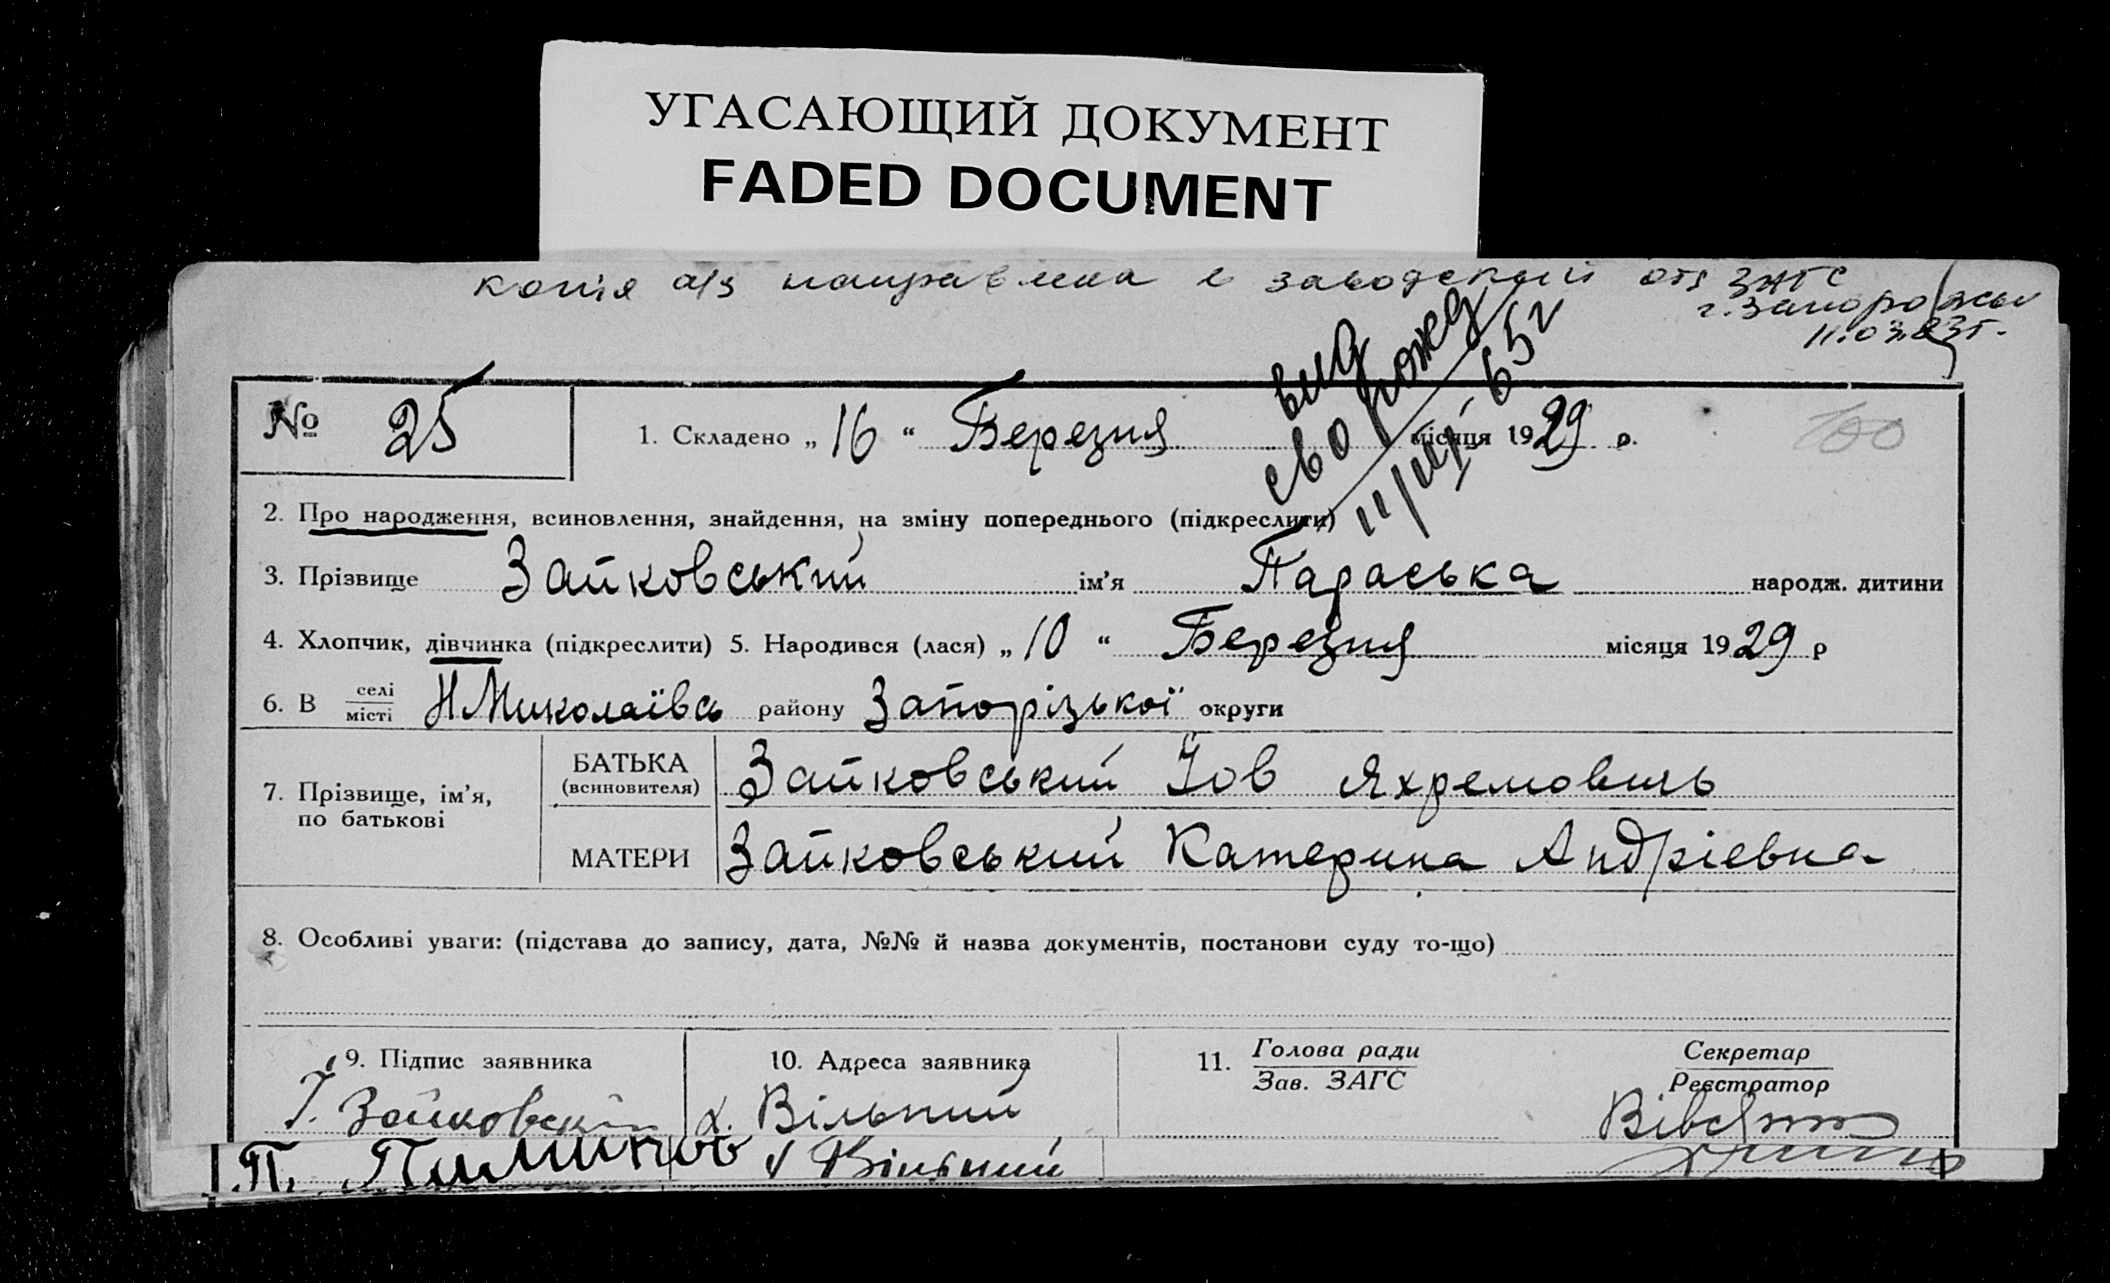 УГАСАЮЩИЙ ДОКУМЕНТ
FADED DOCUMENT
копія а/з направлена в заводский отд ЗАГС
г. Запорожья
11.03.83г.
вид
сво рожд
11/III 65 г
№ 25
1. Складено „ 16 “ Березня місяця 1929 р.
100
2. Про народження, всиновлення, знайдення, на зміну попереднього (підкреслити)
3. Прізвище Зайковський ім’я Параська народж. дитини
4. Хлопчик, дівчинка (підкреслити) 5. Народився (лася) „ 10 “ Березня місяця 1929 р
6. В селі/місті Н Миколаївсь району Запорізької округи
7. Прізвище, ім’я, по батькові
БАТЬКА (всиновителя) Зайковський Йов Яхремовичь
МАТЕРИ Зайковський Катерина Андріевна
8. Особливі уваги: (підстава до запису, дата, №№ й назва документів, постанови суду то-що)
9. Підпис заявника 10. Адреса заявника 11. Голова ради/Зав. ЗАГС Секретар/Реєстратор
Зайковскій х. Вільний
П. х Вільний